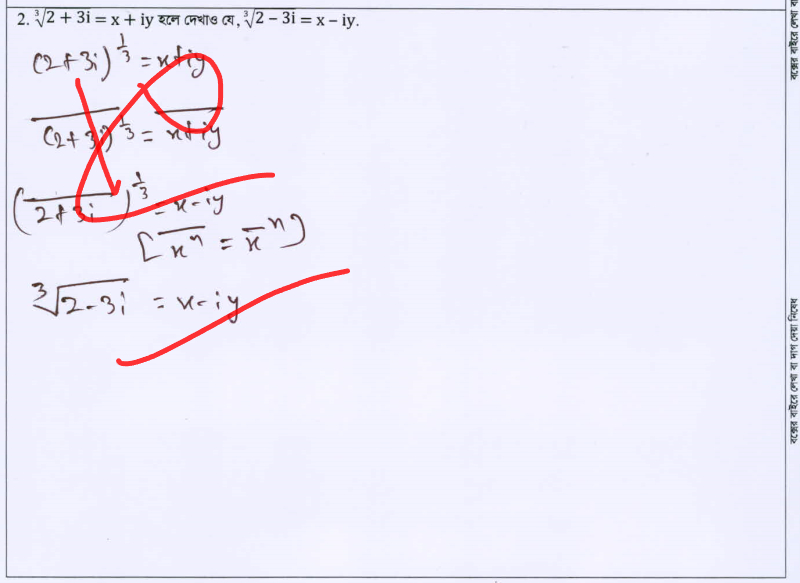 2. ∛2 + 3i = x + iy হলে দেখাও যে, ∛2 – 3i = x – iy.
(2+3i)^(1/3) = x+iy
\overline{(2+3i)^(1/3)} = \overline{x+iy}
(\overline{2+3i})^(1/3) = x-iy
[\overline{x^n} = \overline{x}^n]
∛(2-3i) = x-iy
বক্সের বাইরে লেখা বা
বক্সের বাইরে লেখা বা দাগ দেয়া নিষেধ